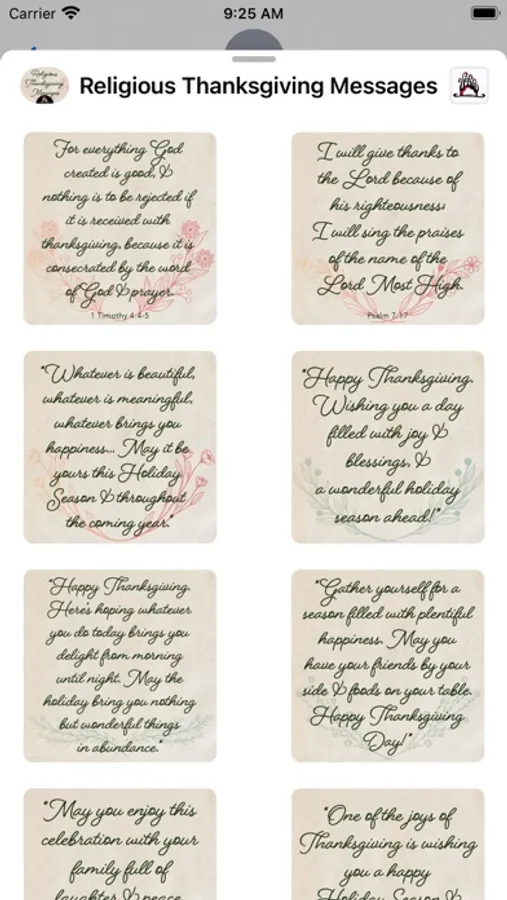 Carrier 9:25 AM
Religious Thanksgiving Messages
Religious
Thanksgiving
Messages
For everything God
created is good, &
nothing is to be rejected if
it is received with
thanksgiving, because it is
consecrated by the word
of God & prayer.
1 Timothy 4:4-5
I will give thanks to
the Lord because of
his righteousness;
I will sing the praises
of the name of the
Lord Most High.
Psalm 7:17
"Whatever is beautiful,
whatever is meaningful,
whatever brings you
happiness... May it be
yours this Holiday
Season & throughout
the coming year."
"Happy Thanksgiving.
Wishing you a day
filled with joy &
blessings, &
a wonderful holiday
season ahead!"
"Happy Thanksgiving.
Here's hoping whatever
you do today brings you
delight from morning
until night. May the
holiday bring you nothing
but wonderful things
in abundance."
"Gather yourself for a
season filled with plentiful
happiness. May you
have your friends by your
side & foods on your table.
Happy Thanksgiving
Day!"
"May you enjoy this
celebration with your
family full of
laughter & peace
"One of the joys of
Thanksgiving is wishing
you a happy
Holiday Season &